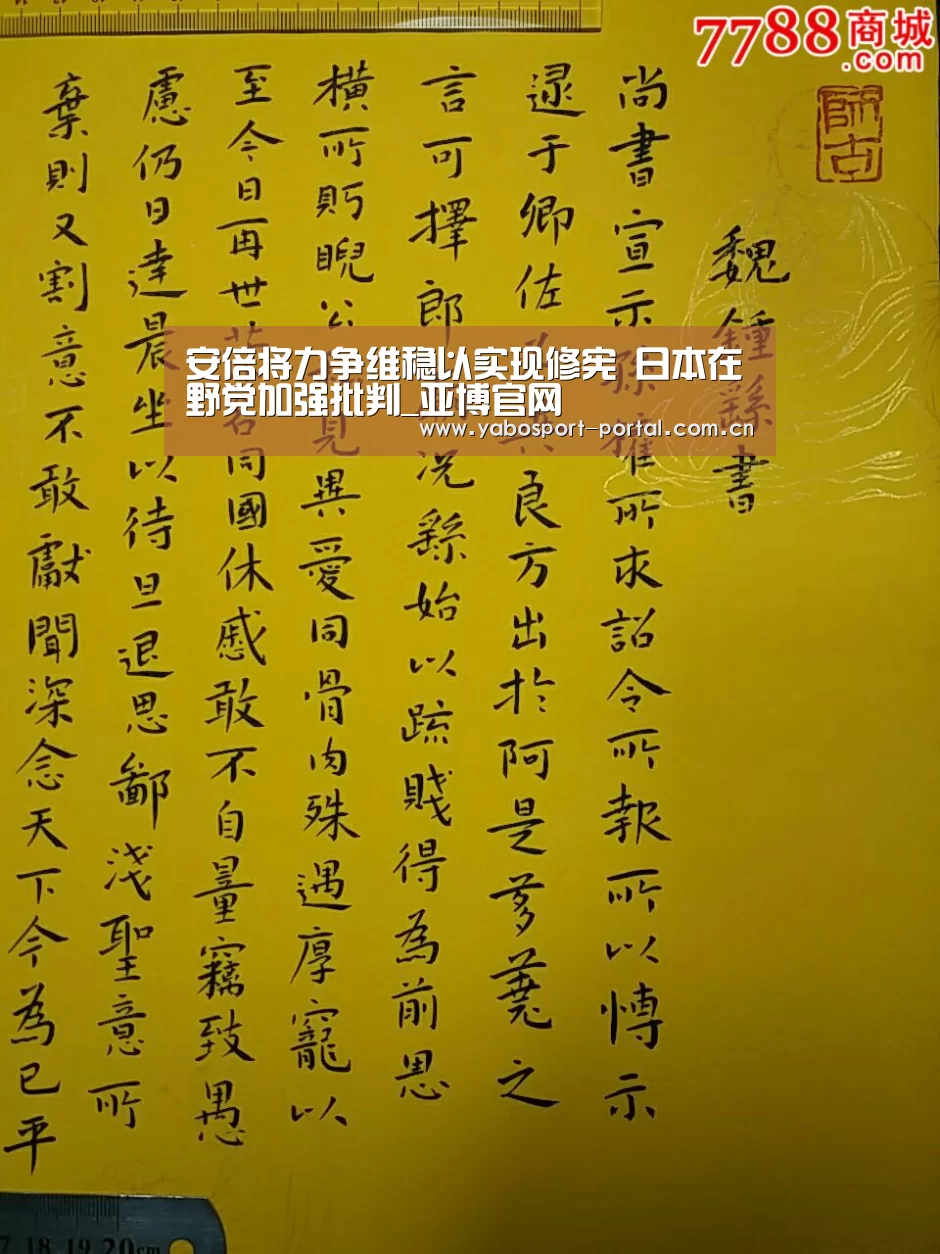 7788商城
.com
師古
魏鍾繇書
尚書宣示孫權所求詔令所報所以愽示
逮于卿佐冀良方出於阿是芻蕘之
言可擇郎况繇始以疏賤得為前恩
橫所眄睨公見異愛同骨肉殊遇厚寵以
至今日再世名同國休慼敢不自量竊致愚
慮仍日達晨坐以待旦退思鄙淺聖意所
棄則又割意不敢獻聞深念天下今為已平
安倍将力争维稳以实现修宪 日本在
野党加强批判_亚博官网
www.yabosport-portal.com.cn
18 19 20cm